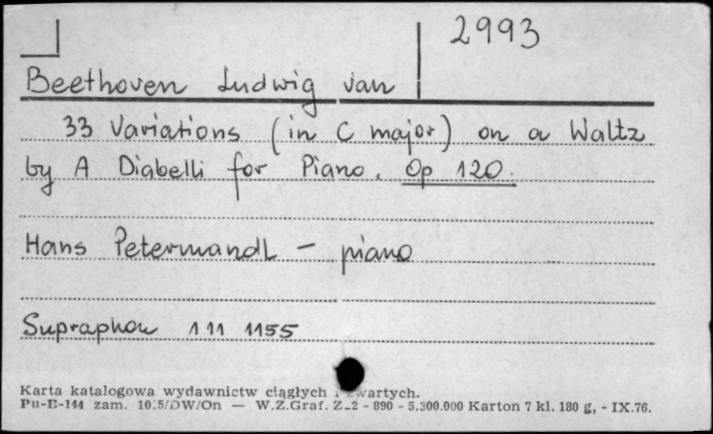 2993
Beethoven Ludwig van
33 Variations (in C major) on a Waltz
by A Diabelli for Piano. Op 120.
Hans Petermandl - piano
Supraphon 111 1155
Karta katalogowa wydawnictw ciągłych i zwartych.
Pu-E-144 zam. 1015/DW/On — W.Z.Graf. Z-2 - 890 - 5.300.000 Karton 7 kl. 180 g, - IX.76.